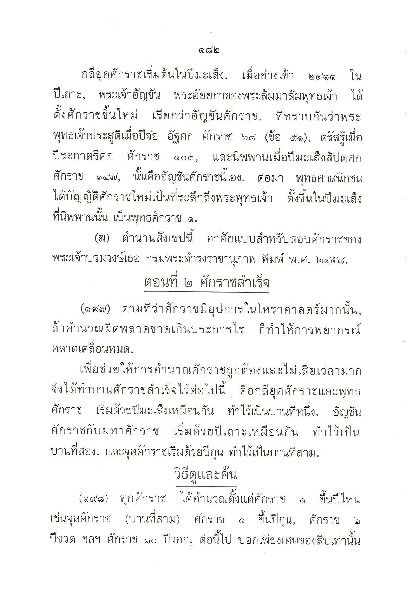 ๔๘๒
กลียุคศักราชเริ่มต้นในปีมะเส็ง. เมื่อช่วงเข้า ๒๔๑๑ ใน
ปีเถาะ, พระเจ้าอัญชัน พระอัยยกาของพระสัมมาสัมพุทธเจ้า ได้
ตั้งศักราชขึ้นใหม่ เรียกว่าอัญชันศักราช. ที่ทราบกันว่าพระ
พุทธเจ้าประสูติเมื่อปีจอ อัฐศก ศักราช ๖๘ (ข้อ ๕๑), ตรัสรู้เมื่อ
ปีระกาตรีศก ศักราช ๑๐๓, และนิพพานเมื่อปีมะเส็งสัปตศก
ศักราช ๑๔๗, นั้นคืออัญชันศักราชนี้เอง. ต่อมา พุทธศาสนิกชน
ได้บัญญัติศักราชใหม่เป็นที่ระลึกถึงพระพุทธเจ้า ตั้งขึ้นในปีมะเส็ง
ที่นิพพานนั้น เป็นพุทธศักราช ๑.
ตำนานสังเขปนี้ อาศัยแบบสำหรับสอบศักราชของ
พระเจ้าบรมวงศ์เธอ กรมพระดำรงราชานุภาพ พิมพ์ พ.ศ.
ตอนที่ ๒ ศักราชสำเร็จ
(๑๙๗) ตามที่ว่าศักราชมีอุปการในโหราศาสตร์มากนั้น,
ถ้าคำนวณผิดพลาดขาดเกินประการไร ก็ทำให้การพยากรณ์
คลาดเคลื่อนหมด.
เพื่อช่วยให้การคำนวณศักราชถูกต้องและไม่เสียเวลามาก
จึงได้ทำบานศักราชสำเร็จไว้ต่อไปนี้ คือกลียุคศักราชและพุทธ
ศักราช เริ่มด้วยปีมะเส็งเหมือนกัน ทำไว้เป็นบานที่หนึ่ง, อัญชัน
ศักราชกับมหาศักราช เริ่มด้วยปีเถาะเหมือนกัน ทำไว้เป็น
บานที่สอง, และจุลศักราชเริ่มด้วยปีกุน ทำไว้เป็นบานที่สาม.
วิธีดูและค้น
(๑๙๘) ทุกศักราช ได้คำนวณตั้งแต่ศักราช ๑ ขึ้นปีไหน
เช่นจุลศักราช (บานที่สาม) ศักราช ๑ ขึ้นปีกุน, ศักราช ๒
ปีชวด ฯลฯ ศักราช ๑๐ ปีวอก, ต่อนี้ไป บอกเพียงเศษของสิบเท่านั้น